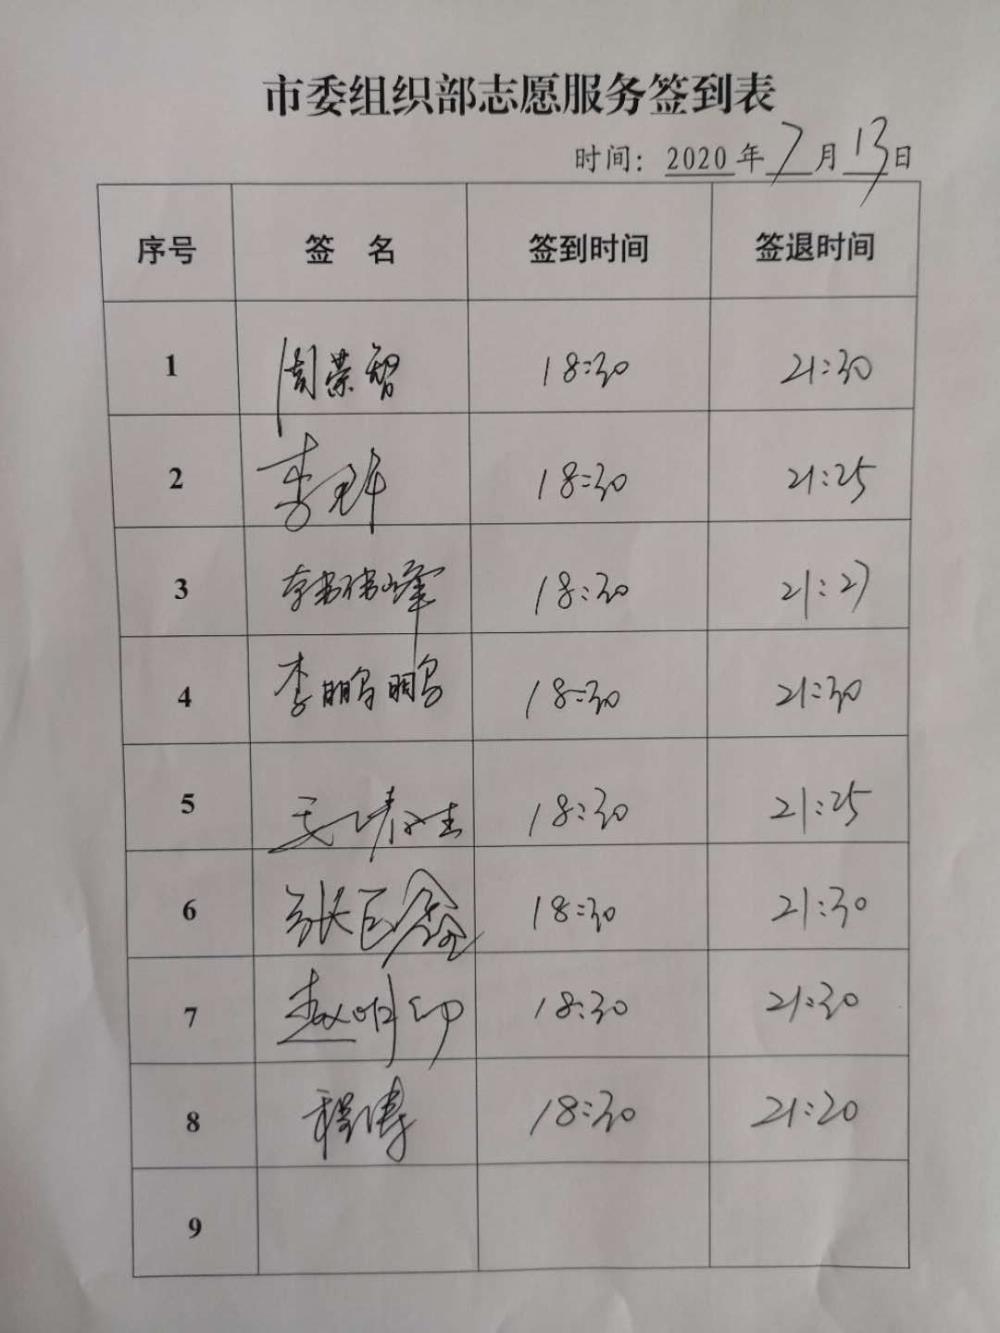 市委组织部志愿服务签到表
时间：2020年7月13日
序号 签 名 签到时间 签退时间
1 周荣智 18:30 21:30
2 李 18:30 21:25
3 韩伟峰 18:30 21:27
4 李鹏鹏 18:30 21:30
5 18:30 21:25
6 张巨鑫 18:30 21:30
7 赵明印 18:30 21:30
8 程涛 18:30 21:20
9